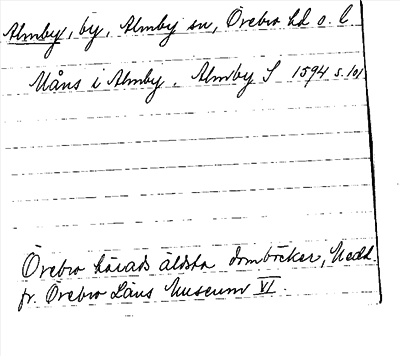 Almby, by, Almby sn, Örebro hd o. l.
Måns i Almby. Almby S 1594 s. 101
Örebro härads äldsta domböcker, Medd.
fr. Örebro Läns Museum VI.